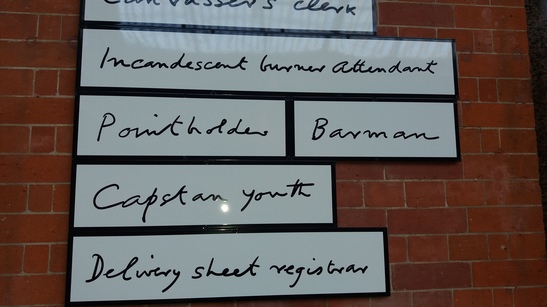 Canvasser's clerk
Incandescent burner attendant
Pointholder Barman
Capstan youth
Delivery sheet registrar